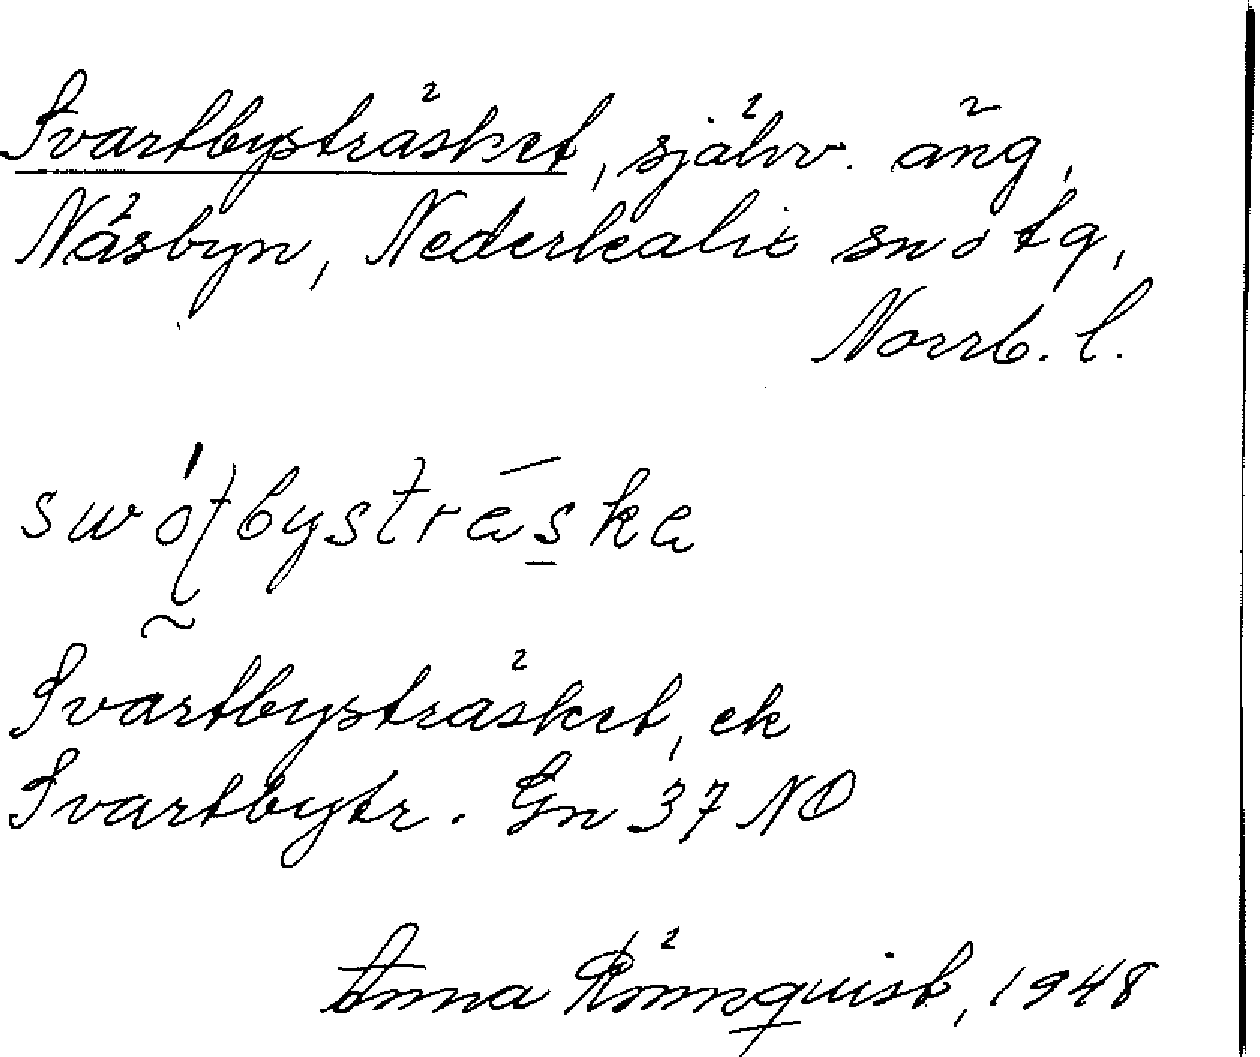 Svartbyträsket, självv. äng,
Näsbyn, Nederkalix sn o tg,
Norrb. l.
swórtbysträska
Svartbysträsket, ek
Svartbytr. Gn 37 NO
Anna Rönnquist, 1948